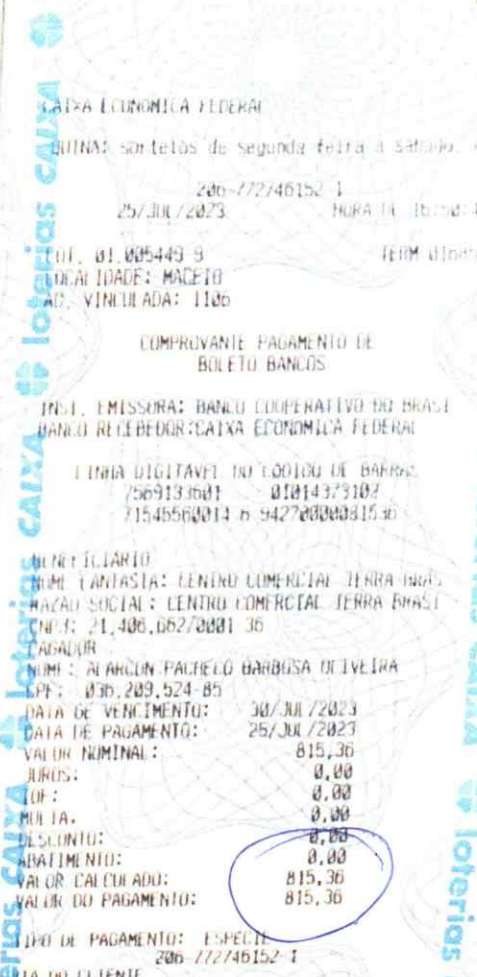 CAIXA ECONOMICA FEDERAL
QUINA: sorteios de segunda feira a sábado.
206-772746152-1
25/JUL/2023 HORA DE 16:50:4
LOT. 01.005449-9 TERM 0168
LOCALIDADE: MACEIO
AG. VINCULADA: 1106
COMPROVANTE PAGAMENTO DE
BOLETO BANCOS
INST. EMISSORA: BANCO COOPERATIVO DO BRASI
BANCO RECEBEDOR:CAIXA ECONOMICA FEDERAL
LINHA DIGITAVEL DO CODIGO DE BARRAS
7569133601 01014373102
71545560014 6 94270000081536
BENEFICIARIO
NOME FANTASIA: CENTRO COMERCIAL TERRA BRAS
RAZAO SOCIAL: CENTRO COMERCIAL TERRA BRASI
CNPJ: 21.406.662/0001-36
PAGADOR
NOME: ALARCON PACHECO BARBOSA OLIVEIRA
CPF: 036.209.524-85
DATA DE VENCIMENTO: 30/JUL/2023
DATA DE PAGAMENTO: 25/JUL/2023
VALOR NOMINAL: 815,36
JUROS: 0,00
IOF: 0,00
MULTA: 0,00
DESCONTO: 0,00
ABATIMENTO: 0,00
VALOR CALCULADO: 815,36
VALOR DO PAGAMENTO: 815,36
TIPO DE PAGAMENTO: ESPECIE
206-772746152-1
VIA DO CLIENTE
loterias CAIXA
loterias CAIXA
loterias